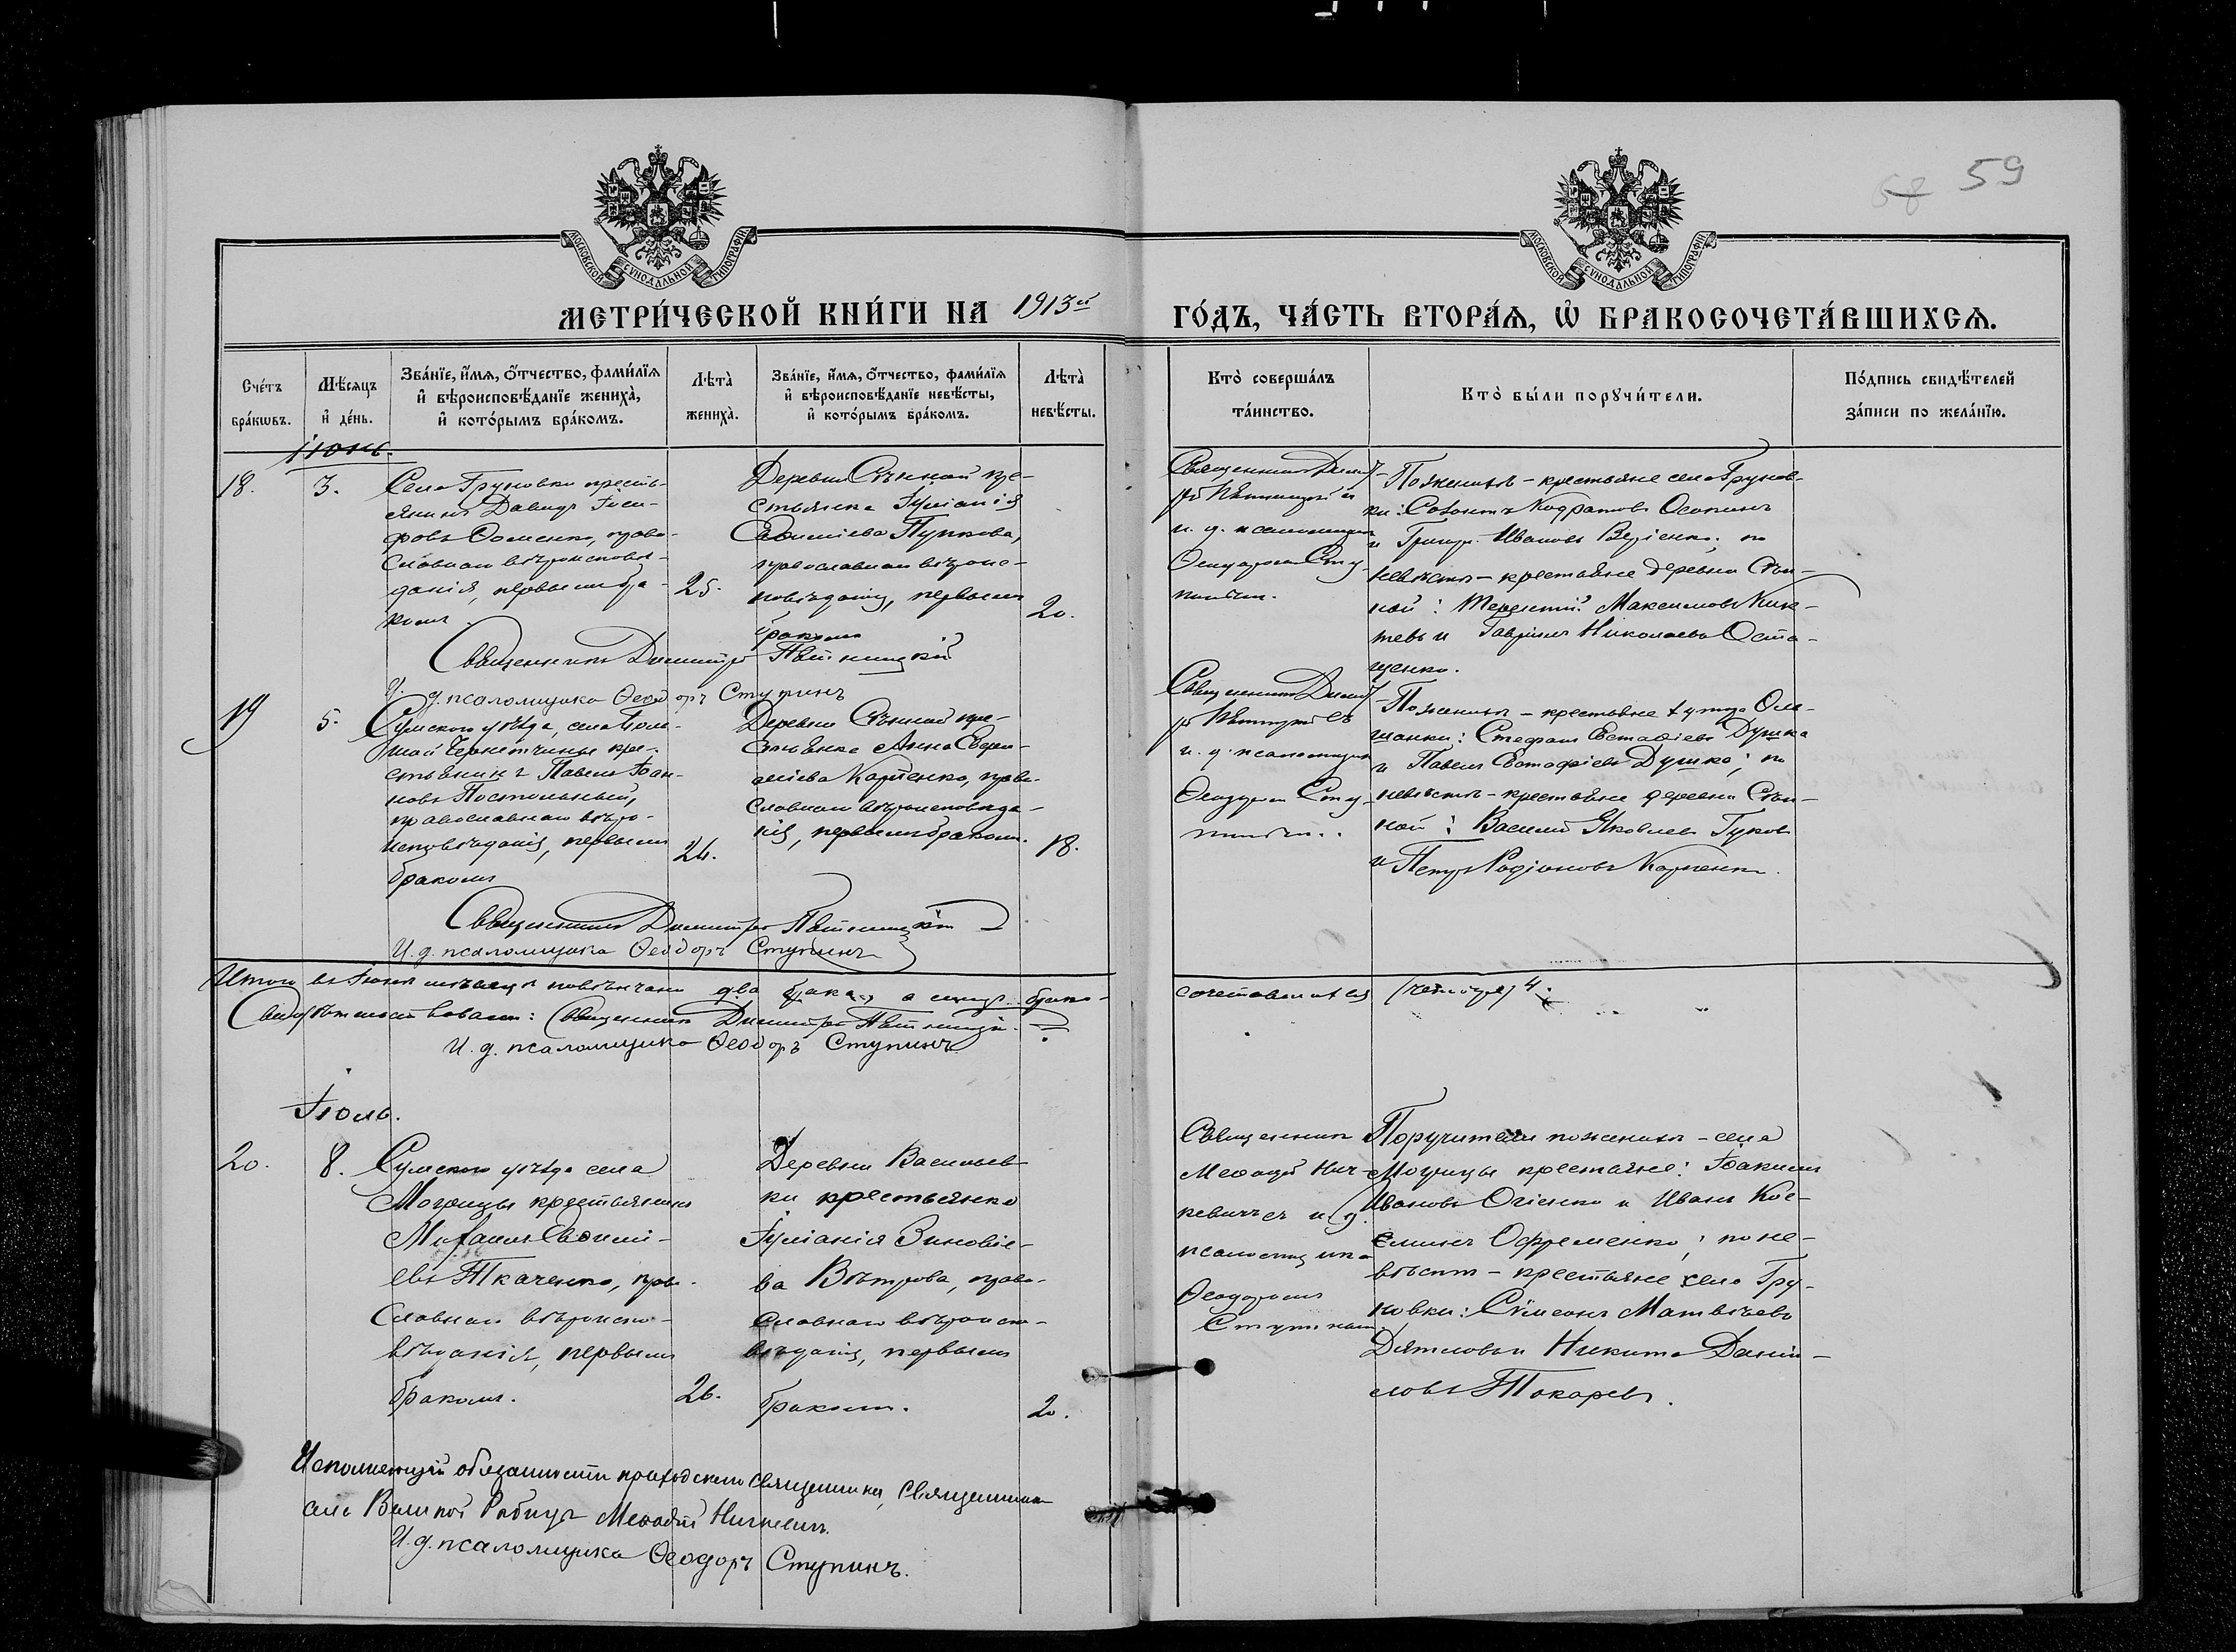 59
58
МОСКОВСКОЙ СУНОДАЛЬНОЙ ТИПОГРАФІИ
МОСКОВСКОЙ СУНОДАЛЬНОЙ ТИПОГРАФІИ
МЕТРИ́ЧЕСКОЙ КНИ́ГИ НА 1913й
ГО́ДЪ, ЧА́СТЬ ВТОРА́Ѧ, Ѡ БРАКОСОЧЕТА́ВШИХСѦ.
Сче́тъ
бра́кѡвъ.
Мѣ́сѧцъ
и҆ де́нь.
Зва́нїе, и҆́мѧ, ѻ҆́тчество, фами́лїѧ
и҆ вѣроисповѣ́данїе жениха̀,
и҆ кото́рымъ бра́комъ.
Лѣта̀
жениха̀.
Зва́нїе, и҆́мѧ, ѻ҆́тчество, фами́лїѧ
и҆ вѣроисповѣ́данїе невѣ́сты,
и҆ кото́рымъ бра́комъ.
Лѣта̀
невѣ́сты.
Кто̀ соверша́лъ
та́инство.
Кто̀ бы́ли порꙋчи́тели.
По́дпись свидѣ́телей
за́писи по жела́нїю.
Іюнь.
18.
3.
Села Груновки кресть-
янинъ Давидъ
право-
славнаго вѣроисповѣ-
данія, первымъ бра-
комъ.
25.
Деревни Сѣнной кре-
стьянка Іуліанія
Евѳиміева
православнаго вѣроис-
повѣданія, первымъ
бракомъ
20.
Священникъ Димит-
рій Пѣтницкій и
и. д. псаломщика
Ѳеодоромъ Сту-
пинымъ.
По женихѣ - крестьяне села Грунов-
ки: Кодратовъ
и Григорій Ивановъ по
невѣстѣ - крестьяне деревни Сѣн-
ной: Терентій Максимовъ Ник-
тевъ и Гавріилъ Николаевъ Оста-
щенко.
Священникъ Димитрій Пѣтницкій
И. д. псаломщика Ѳеодоръ Ступинъ
19
5.
Сумского уѣзда, села
Чернетчины кре-
стьянинъ Павелъ Іоан-
новъ Постольный,
православнаго вѣро-
исповѣданія, первымъ
бракомъ
24.
Деревни Сѣнной кре-
стьянка Анна
Карпенко, право-
славнаго вѣроисповѣда-
нія, первымъ бракомъ.
18.
Священникъ Димит-
рій Пѣтницкій съ
и. д. псаломщика
Ѳеодоромъ Сту-
пинымъ.
По женихѣ - крестьяне хутора Оль-
шанки: Стефанъ Евстафіевъ Душка
и Павелъ Евстафіевъ Душко; по
невѣстѣ - крестьяне деревни Сѣн-
ной: Василій Яковлевъ Гуковъ
и Петръ Родіоновъ Карпенко.
Священникъ Димитрій Пѣтницкій
И. д. псаломщика Ѳеодоръ Ступинъ
Итого въ Іюнѣ мѣсяцѣ повѣнчано два брака, а лицъ брако-
сочетавшихся (четыре) 4.
Свидѣтельствовали: Священникъ Димитрій Пѣтницкій.
И. д. псаломщика Ѳеодоръ Ступинъ
Іюль.
20.
8.
Сумского уѣзда села
Могрицы крестьянинъ
Михаилъ Евѳимі-
евъ Ткаченко, право-
славнаго вѣроиспо-
вѣданія, первымъ
бракомъ.
26.
Деревни Васильев-
ки крестьянка
Іуліанія Зиновіе-
ва Вѣтрова, право-
славнаго вѣроиспо-
вѣданія, первымъ
бракомъ.
20.
Священникъ
Меѳодій Нич-
кевичъ и. д.
псаломщика
Ѳеодоромъ
Ступинымъ
Поручители по женихѣ - села
Могрицы крестьяне: Іоакимъ
Ивановъ Огіенко и Иванъ Кос-
минъ Офременко; по не-
вѣстѣ - крестьяне села Гру-
новки: Сѵмеонъ Матвѣевъ
Дятловъ и Никита Дани-
ловъ Токаревъ.
Исполняющій обязанности приходскаго священника, священникъ
села Великой Рыбицы Меѳодій Ничкевичъ.
И. д. псаломщика Ѳеодоръ Ступинъ.